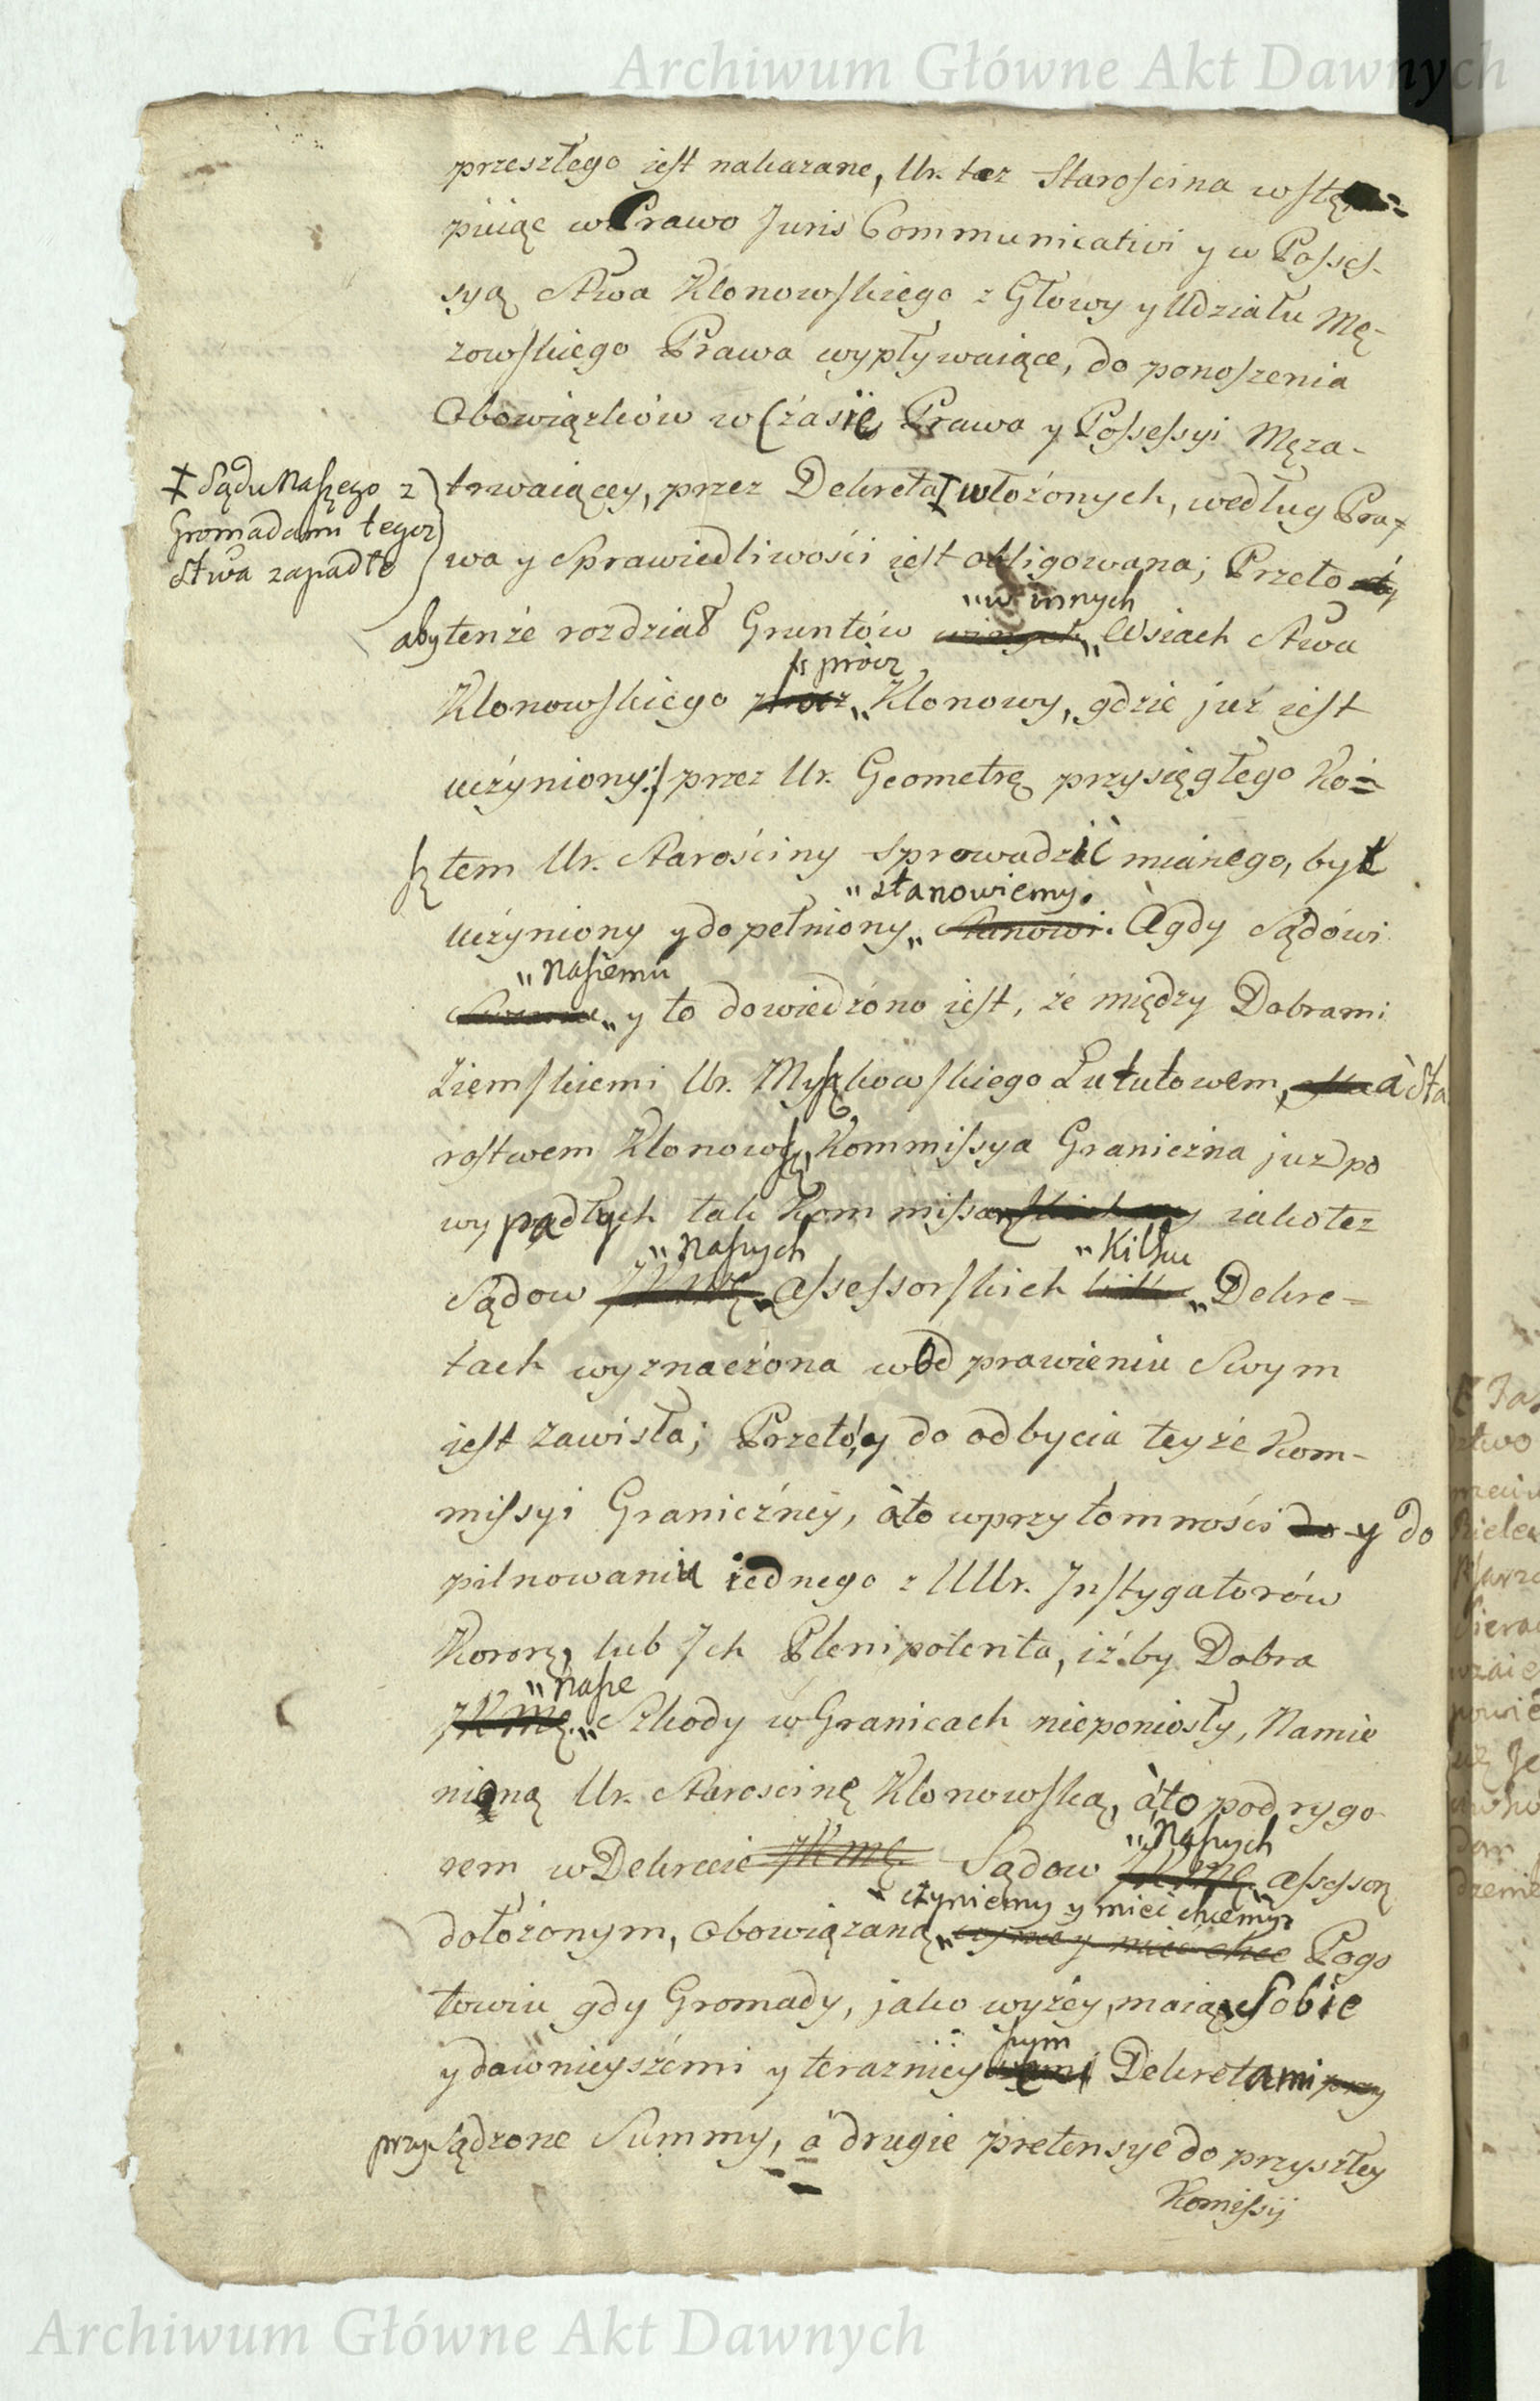 Archiwum Główne Akt Dawnych
przeszłego iest nakazane, Ur. taz Starościna wstę=
puiąc w Prawo Juris Communicativi y w Posses-
syą Stwa Klonowskiego z Głowy y Udziału Mę-
zowskiego Prawa wypływaiące, do ponoszenia
Obowiązków w Czasie Prawa y Possessyi Męża-
trwaiącey, przez Dekreta włożonych, według Pra-
‡ Sądu Naszego z
Gromadami tegoz
Stwa zapadłe
wa y Sprawiedliwości iest obligowana; Przeto
aby tenże rozdział Gruntów w innych Wsiach Stwa
Klonowskiego prócz Klonowy, gdzie już iest
uczyniony:/ przez Ur. Geometrę przysięgłego Ko=
sztem Ur. Starościny sprowadzić mianego, był
uczyniony y dopełniony stanowiemy. A gdy Sądowi
Naszemu y to dowiedzono iest, że między Dobrami
Ziemskiemi Ur. Myszkowskiego Lututowem, à Sta
rostwem Klonowsą, Kommissya Graniczna juz po
wypadłych tak Kommissar iako tez
Sądow Naszych Assessorskich Kilku Dekre=
tach wyznaczona w Odprawieniu Swym
iest zawisła; Przeto, y do odbycia teyże Kom-
missyi Graniczney, à to w przytomności y do
pilnowaniu iednego z UUr. Instygatorów
Koronę, lub Ich Plenipotenta, iżby Dobra
Nasze Szkody w Granicach nieponiosły, Namie
nioną Ur. Starościnę Klonowską, à to pod rygo
rem w Dekrecie Sądow Naszych Assessorę
dołożonym, Obowiązaną czyniemy y mieć chcemy Pogo
towiu gdy Gromady, jako wyżey, maią Sobie
y dawnieyszémi y teraznieyszym Dekretami
przysądzone Summy, à drugie pretensye do przyszłey
Komissyi
Archiwum Główne Akt Dawnych